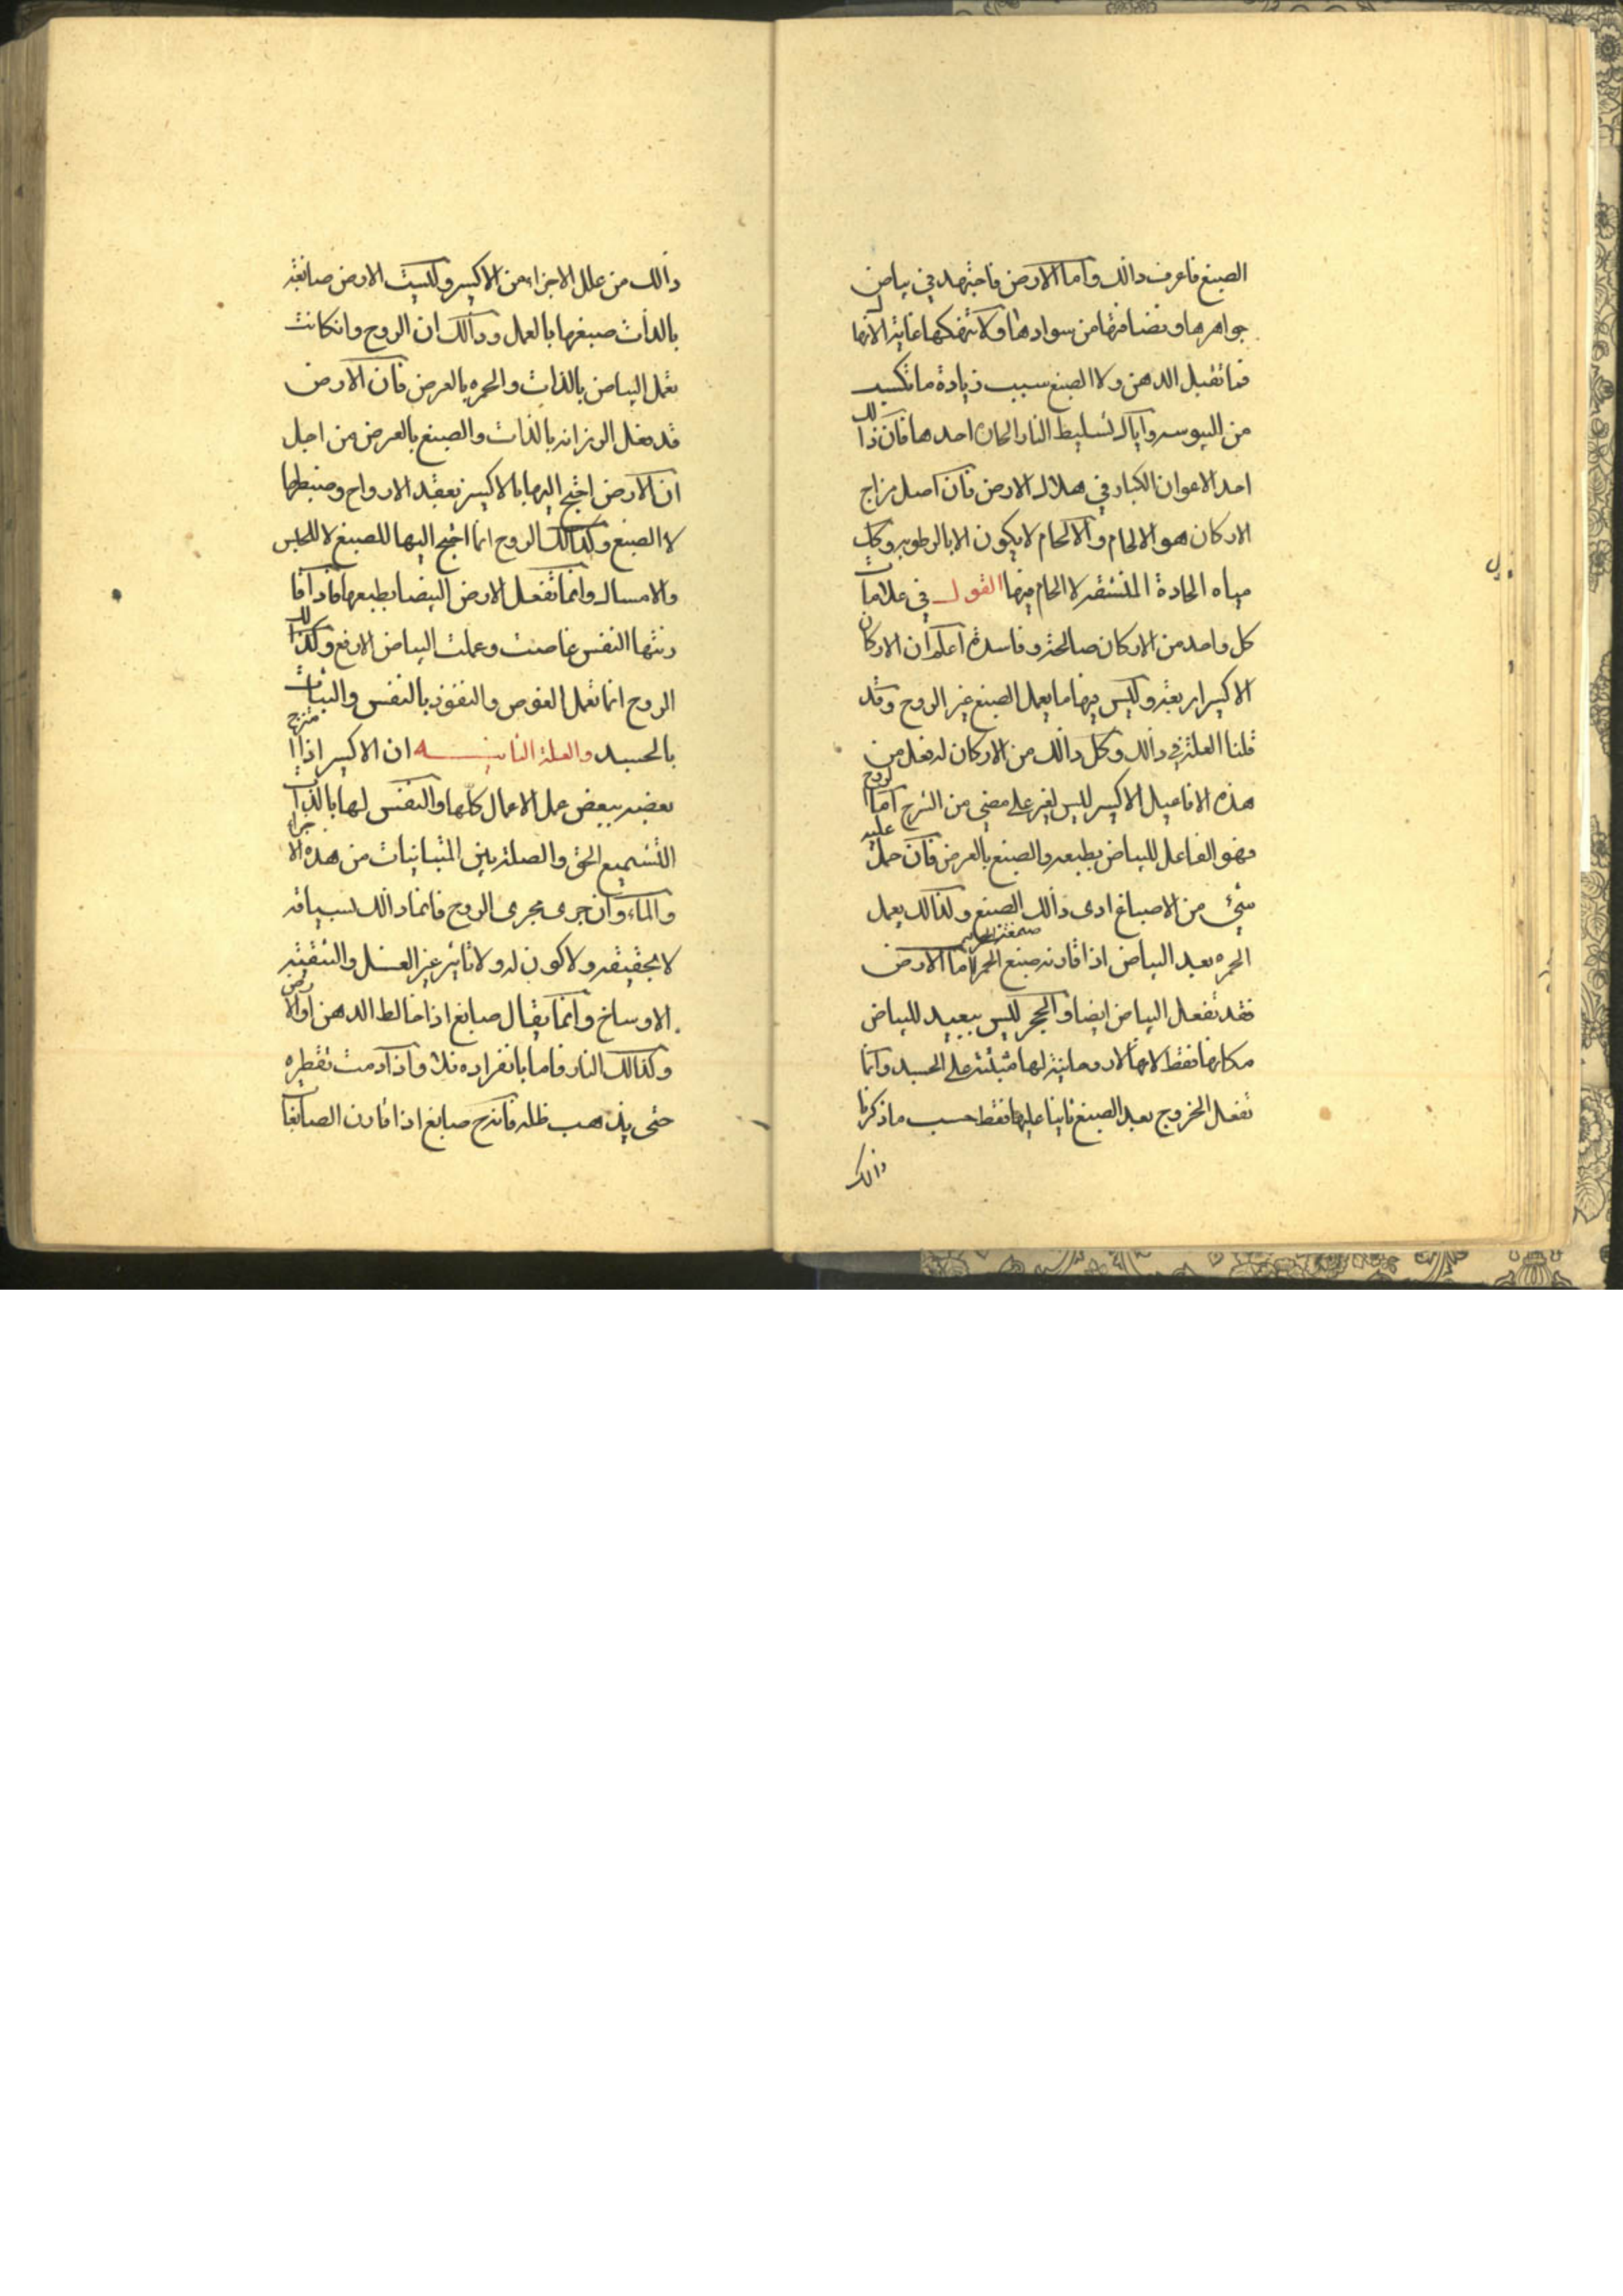 الصبغ فاعرف ذالك واما الارض فاجتهد في بياض
جواهرها ونضافتها من سوادها ولا تنهكها غاية الانها
فما تقبل الدهن ولا الصبغ سبب زيادة ما تكسب
من اليبوسه واياك تسليط النار الحاره احدها فان ذالك
احد الاعوان الكبار في هلاك الارض فان اصل مزاج
الاركان هو الالحام والالحام لا يكون الا بالرطوبه وكل
مياه الحادة المنشقه لا الحام فيها القول في علامات
كل واحد من الاركان صالحة وفاسدة اعلم ان الاركان
الاكسير اربعة وليس فيها ما يعمل الصبغ غير الروح وقد
قلنا العلة في ذالك وكل ذالك من الاركان له فعل من
هذه الافاعيل الاكسير ليس لغير على مضي من الشرح اما الروح
فهو الفاعل للبياض بطبعه والصبغ بالعرض فان حمل عليه
شيء من الاصباغ ادى ذالك الصبغ ولذالك يعمل
الحمره بعد البياض اذا قارنه صبغ الحمره اما الارض
فقد تفعل البياض ايضا والحجر ليس ببعيد للبياض
مكانها فقط لانها لا روحانية لها منبثة على الجسد وانما
تفعل الخروج بعد الصبغ ثانيا عليها فقط حسب ما ذكرنا
ذالك
ذالك من علل الاجزاء من الاكسير وليست الارض صابغة
بالذات صبغها بالعمل وذالك ان الروح وانكانت
تعمل البياض بالذات والحمره بالعرض فان الارض
قد تفعل الرزانه بالذات والصبغ بالعرض من اجل
ان الارض احتيج اليها بالاكسير بعقد الارواح وضبطها
لا الصبغ وكذالك الروح انما احتيج اليها للصبغ لا للحبس
والامساك وانما تفعل الارض البيضا بطبعها فاذا قا
رنتها النفس غاصت وعملت البياض الارفع وكذالك
الروح انما تعمل الغوص والنفوذ بالنفس والثبات
بالجسد والعلة الثانيه ان الاكسير اذا امتزج
بعضه ببعض عمل الاعمال كلها والنفس لها بالذات
التشميع الحق والصلة بين المتباينات من هذه الاجزاء
والماء وان جرى مجرى الروح فانما ذالك لسياقه
لا بحقيقه ولا كون له ولا تاثير غير الغسل والتنقية
الاوساخ وانما يقال صابغ اذا خالط الدهن او الارض
وكذالك النار فاما بانفراده فلا واذا ادمت تقطيره
حتى يذهب ظله فانه ح صابغ اذا قارن الصابغات